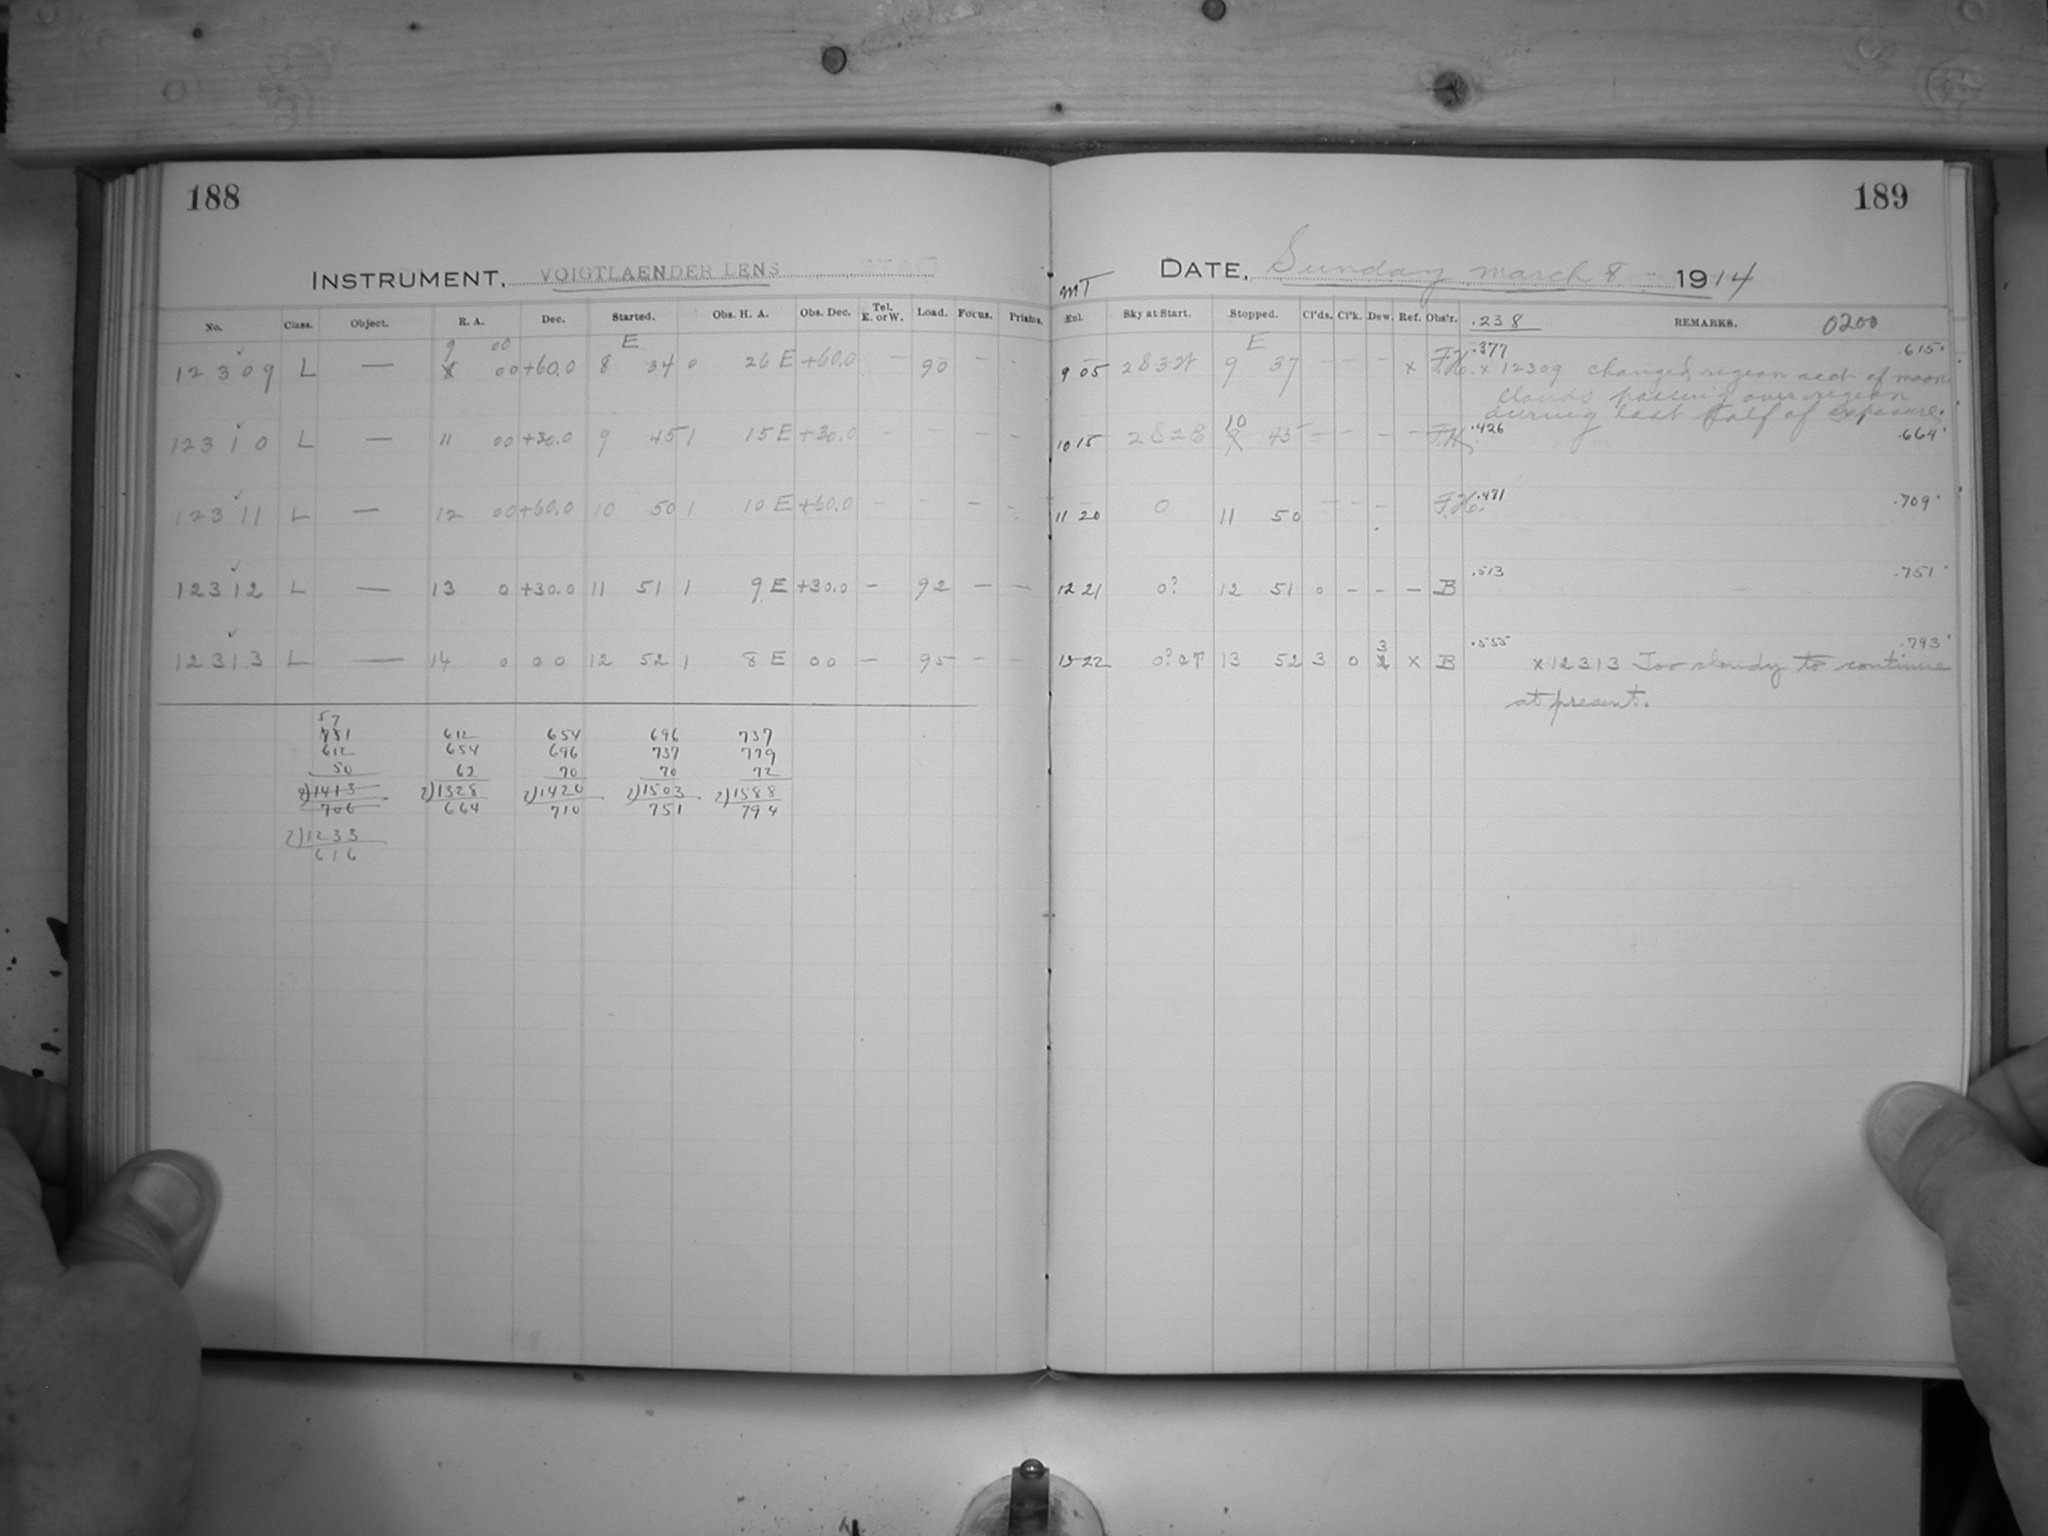 188
189
INSTRUMENT, VOIGTLAENDER LENS
DATE, Sunday March 8 1914
MT
No. Class. Object. R. A. Dec. Started. Obs. H. A. Obs. Dec. Tel. E. or W. Load. Focus. Prisms.
Eul. Sky at Start. Stopped. Cl'ds. Cl'k. Dew. Ref. Obs'r. .238 REMARKS. 0200
9 00 E
E .377 .615
12309 L — 8 00 +60.0 8 34 0 26 E +60.0 — 90 - -
9 05 9 37 — — — x F.H. x 12309 changed region acct of moon
Clouds passing over region
during last half of exposure.
12310 L — 11 00 +30.0 9 45 1 15 E +30.0 — — — -
10 .426 .664
10 15 2 8 2 E 9 45 — — — — F.H.
12311 L — 12 00 +60.0 10 50 1 10 E +60.0 — — — -
11 20 0 11 50 — — - F.H. .471 .709
12312 L — 13 0 +30.0 11 51 1 9 E +30.0 — 92 — —
.513 .751
12 21 0? 12 51 0 - - - B
12313 L — 14 0 0 0 12 52 1 8 E 0 0 — 95 — —
3 .555 .793
13 22 13 52 3 0 x B x 12313 Too cloudy to continue
at present.
57
731 612 654 696 737
612 654 696 737 779
50 62 70 70 72
2)1413 2)1328 2)1420 2)1503 2)1588
706 664 710 751 794
2)1233
616